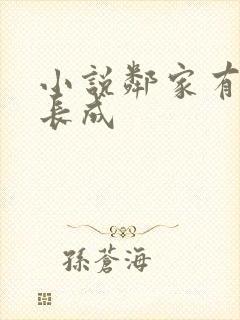 小說鄰家有
長成
孫蒼海